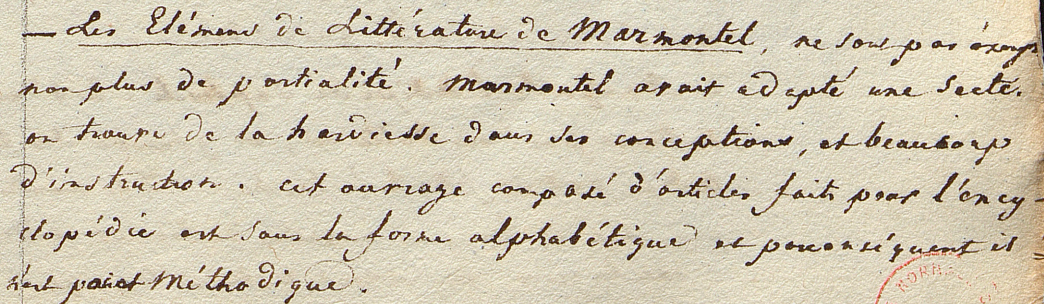 — Les Elémens de Littérature de Marmontel, ne sont pas exemps
non plus de partialité. Marmontel avait adopté une secte.
on trouve de la hardiesse dans ses conceptions, et beaucoup
d'instruction. cet ouvrage composé d'articles faits pour l'ency-
clopédie est sous la forme alphabétique et parconséquent il
n'est point Méthodique.